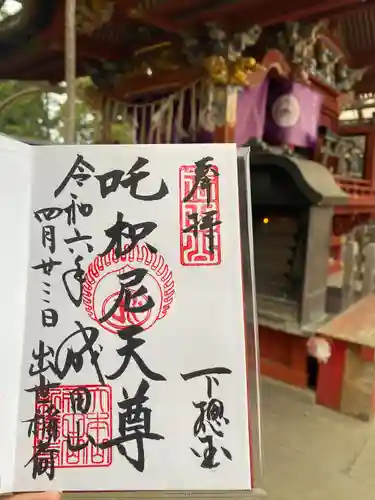 奉拝
下總國
吒枳尼天尊
成田山
出世稲荷
令和六年
四月廿三日